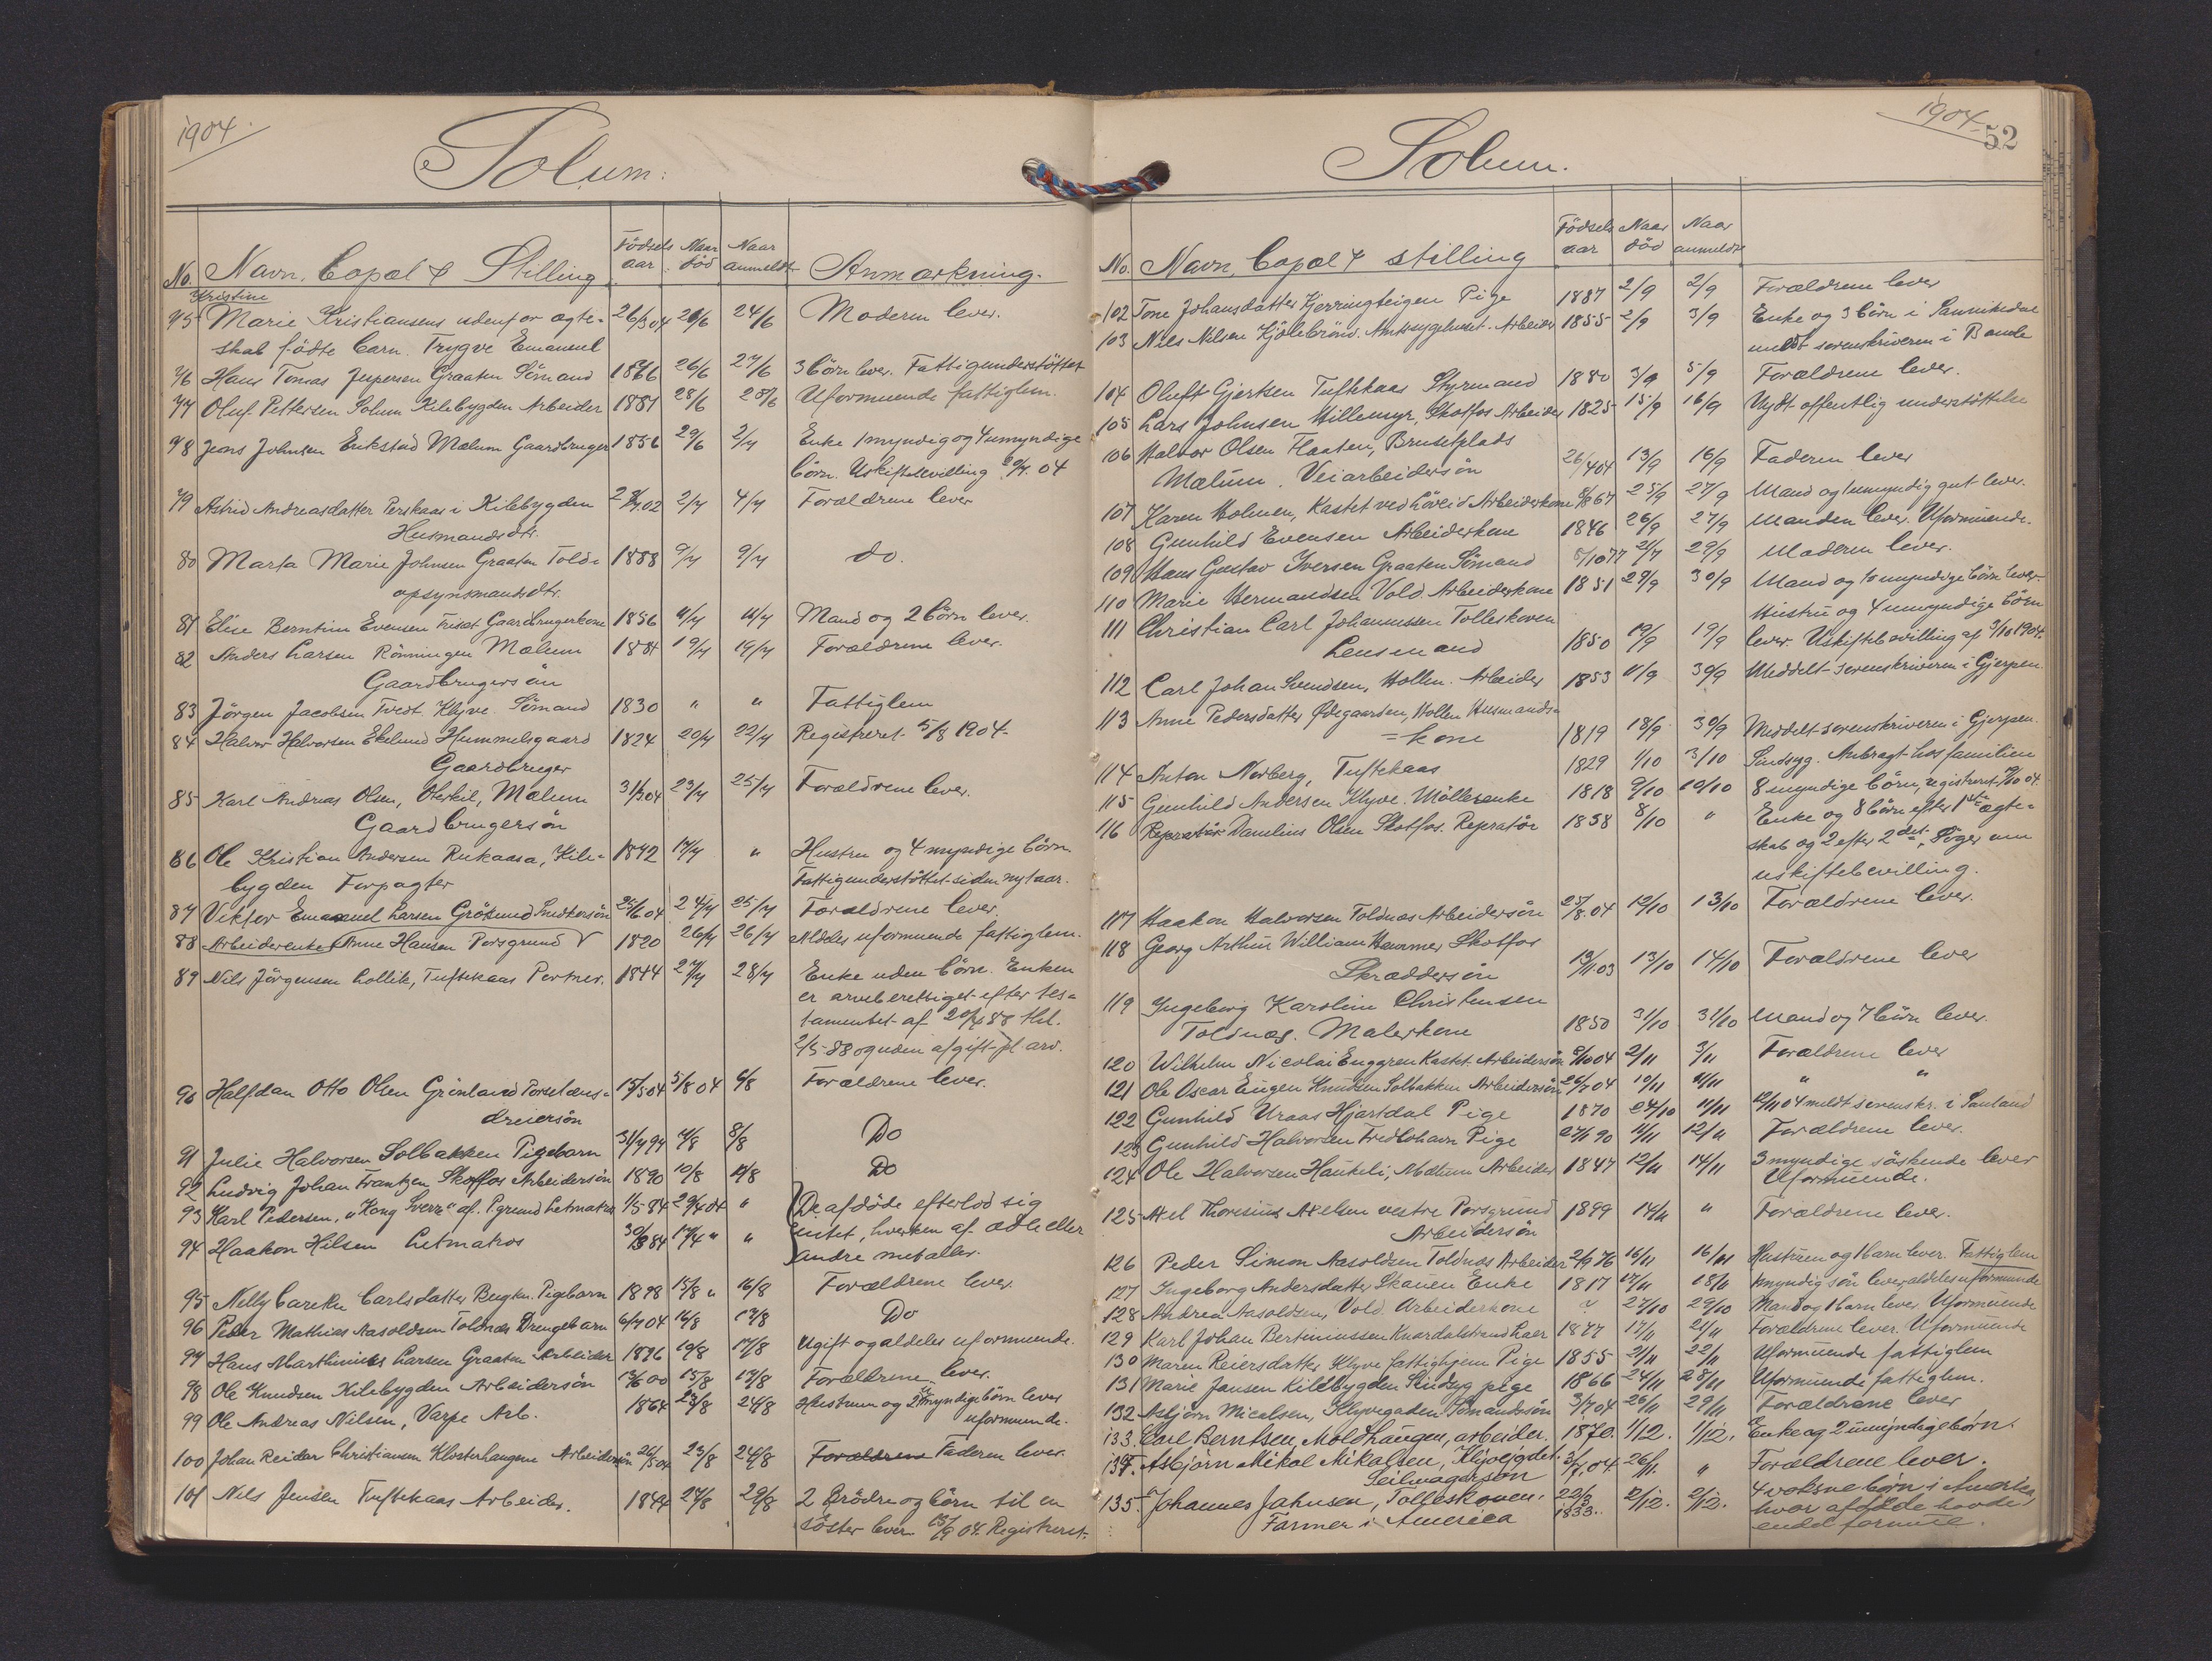 1904.
Solum.
No. Navn, Bopæl & Stilling Födsels aar Naar död Naar anmeldt Anmærkning.
Kristine
75 Marie Kristiansens udenfor ægte- 26/3 04 20/6 24/6 Moderen lever.
skab födte barn. Trygve Emanuel
76 Hans Tomas Jespersen Graaten Sömand 1866 26/6 27/6 3 börn lever. Fattigunderstöttet
77 Oluf Pettersen Solum Kilebygden Arbeider 1881 28/6 28/6 Uformuende fattiglem.
78 Jens Johnsen Enkstad Mælum Gaardbruger 1856 29/6 2/7 Enke 1 myndig og 4 umyndige
börn. Uskiftebevilling 04
79 Astrid Andreasdatter Perskaas i Kilebygden 02 2/7 4/7 Forældrene lever
Husmandsdtr.
80 Marta Marie Johnsen Graaten Told- 1888 9/7 9/7 do.
opsynsmandsdtr.
81 Elise Berntine Evensen Trisæt Gaardbrugerkone 1856 11/7 11/7 Mand og 2 börn lever.
82 Anders Larsen Rönningen Mælum 1884 19/7 19/7 Forældrene lever.
Gaardbrugersön
83 Jörgen Jacobsen Tvedt Klyve Sömand 1830 " " Fattiglem
84 Halvor Halvorsen Ekelund Hummelsgaard 1824 20/7 22/7 Registreret 5/8 1904.
Gaardbruger
85 Karl Andreas Olsen, Oterkil, Mælum 31/3 04 23/7 25/7 Forældrene lever.
Gaardbrugersön
86 Ole Kristian Andersen Rukaasa, Kile- 1842 17/7 " Hustru og 4 myndige börn
bygden Forpagter Fattigunderstöttet siden nytaar.
87 Viktor Emanuel Larsen Grösund Snekersön 25/6 04 24/7 25/7 Forældrene lever.
88 Arbeiderenke Anne Hansen Porsgrund V 1820 26/7 26/7 Aldeles uformuende fattiglem.
89 Nils Jörgensen Lollik, Tuftekaas Portner. 1844 27/7 28/7 Enke uden börn. Enken
er arveberettiget efter tes-
tamentet af 20/4 88 thl.
2/5-88 og uden afgift pl arv.
90 Halfdan Otto Olsen Grönland Porselæns- 15/5 04 5/8 04 6/8 Forældrene lever.
dreiersön
91 Julie Halvorsen Solbakken Pigebarn 31/7 94 4/8 8/8 Do
92 Ludvig Johan Frantzen Skotfos Arbeidersön 1890 10/8 11/8 Do
93 Karl Pedersen, "Kong Sverre" af P.grund Letmatros 1/5-84 29/4 04 " De afdöde efterlod sig
94 Haakon Hilsen Letmatros 84 17/4 " " intet, hverken af ædle eller
andre metaller.
95 Nelly Careku Carlsdatter Bugkn. Pigebarn 1898 15/8 " 16/8 Forældrene lever.
96 Peder Mathias Aasoldsen Toldnæs Drengebarn 6/7 04 16/8 17/8 Do
97 Hans Marthinius Larsen Graaten Arbeider 1896 10/8 17/8 Ugift og aldeles uformuende.
98 Ole Knudsen Kilebygden Arbeidersön 00 15/8 19/8 Forældrene lever.
99 Ole Andreas Nilsen, Varpe Arb. 1864 23/8 24/8 Hustruen og 2 umyndige börn lever
uformuende.
100 Johan Reidar Christiansen Klosterhaugene Arbeidersön 26/5 04 23/8 24/8 Forældrene Faderen lever.
101 Nils Jensen Tuftekaas Arbeider. 1844 27/8 29/8 2 Brödre og börn til en
söster lever 15/9 04. Registreret.
1904.
52
Solum.
No. Navn, Bopæl & stilling Födsels aar Naar död Naar anmeldt
102 Tone Johansdatter Kjerringteigen Pige 1887 2/9 2/9 Forældrene lever
103 Nils Nilsen Kjölebrönd. Amtssygehuset. Arbeider 1855 2/9 3/9 Enke og 3 börn i Sannikedal
meldt sorenskriveren i Bamle
104 Oluft Gjertsen Tuftekaas Styrmand 1880 3/9 5/9 Forældrene lever.
105 Lars Johnsen Hillemyr, Skotfos Arbeider 1825 15/9 16/9 Nydt offentlig understöttelse
106 Halvor Olsen Flaaten, Brusetplads
Mælum. Veiarbeidersön 26/4 04 13/9 16/9 Faderen lever
107 Karen Holmen, Kastet ved Löveid Arbeiderkone 67 25/9 27/9 Mand og 1 umyndig gut lever.
108 Gunhild Evensen Arbeiderkone 1846 26/9 27/9 Manden lever. Uformuende.
109 Hans Gustav Iversen Graaten Sömand 5/10 77 21/7 29/9 Moderen lever.
110 Marie Hermandsen Vold. Arbeiderkone 1851 29/9 30/9 Mand og 10 umyndige börn lever.
111 Christian Carl Johannessen Tolleskoven Hustru og 4 umyndige börn
Lensmand 1850 19/9 19/9 lever. Uskiftebevilling af 3/10 1904.
112 Carl Johan Svendsen, Hollen. Arbeider 1853 11/9 30/9 Meddelt sorenskriveren i Gjerpen.
113 Anne Pedersdatter Ødegaarden, Hollen Husmands-
=kone 1819 18/9 30/9 Meddelt sorenskriveren i Gjerpen
114 Anton Norberg, Tuftekaas 1829 1/10 3/10 Sindsyg. Anbragt hos familien
115 Gunhild Andersen Klyve. Möllerenke 1818 9/10 10/10 8 myndige börn, registreret 04.
116 Repratör Danelius Olsen Skotfos. Repratör 1858 8/10 " Enke og 8 börn efter 1ste ægte-
skab og 2 efter 2det. Söger om
uskiftebevilling.
117 Haakon Halvorsen Toldnæs Arbeidersön 25/8.04 12/10 13/10 Forældrene lever.
118 Georg Arthur William Hammer Skotfos
Skræddersön 19/11 03 13/10 14/10 Forældrene lever
119 Ingeborg Karoline Christensen
Toldnæs. Malerkone 1850 31/10 31/10 Mand og 7 börn lever.
120 Wilhelm Nicolai Enggren Kastet. Arbeidersön 8/10 04 2/11 3/11 Forældrene lever
121 Ole Oscar Eugen Knudsen Solbakken Arbeidersön 26/7 04 10/11 11/11 " "
122 Gunhild Uraas Hjartdal Pige 1870 24/10 11/11 12/11 04 meldt sorenskr. i Sauland
123 Gunhild Halvorsen Fredlohavn Pige 27/1 90 11/11 12/11 Forældrene lever.
124 Ole Halvorsen Haukeli, Mælum Arbeider 1847 12/11 14/11 3 myndige söskende lever
Uformuende.
125 Axel Thoresius Axelsen vestre Porsgrund 1899 14/11 " Forældrene lever.
Arbeidersön
126 Peder Simon Aasoldsen Toldnæs Arbeider 2/9 76 16/11 16/11 Hustruen og 1 barn lever. Fattiglem
127 Ingeborg Andersdatter Skauen Enke 1817 17/11 18/11 1 myndig sön lever, aldeles uformuende
128 Andrea Aasoldsen, Vold. Arbeiderkone " 27/10 29/10 Mand og 1 barn lever. Uformuende
129 Karl Johan Bertiniussen Knardalstrand Laer 1877 17/11 21/11 Forældrene lever. Uformuende
130 Maren Reiersdatter Klyve fattighjem Pige 1855 21/11 22/11 Uformuende fattiglem
131 Marie Jansen Kilebygden Sindsyg pige 1866 24/11 28/11 Uformuende fattiglem.
132 Asbjörn Micalsen, Klyvegaden Sömandssön 3/7 04 26/11 29/11 Forældrene lever
133. Carl Berntsen, Moldhaugen, arbeider. 1870. 1/12. 1/12. Enke og 2 umyndige börn.
134. Asbjörn Mikal Mikalsen, Klyvejgdet. 3/7.04. 26/11. " Forældrene lever.
Seilmagersön
135. Johannes Jahnsen, Tolleskoven. 22/2 1833. 2/12. 2/12. 4 voksne börn i Amerika
Farmer i America hvor afdöde havde
endel formue.